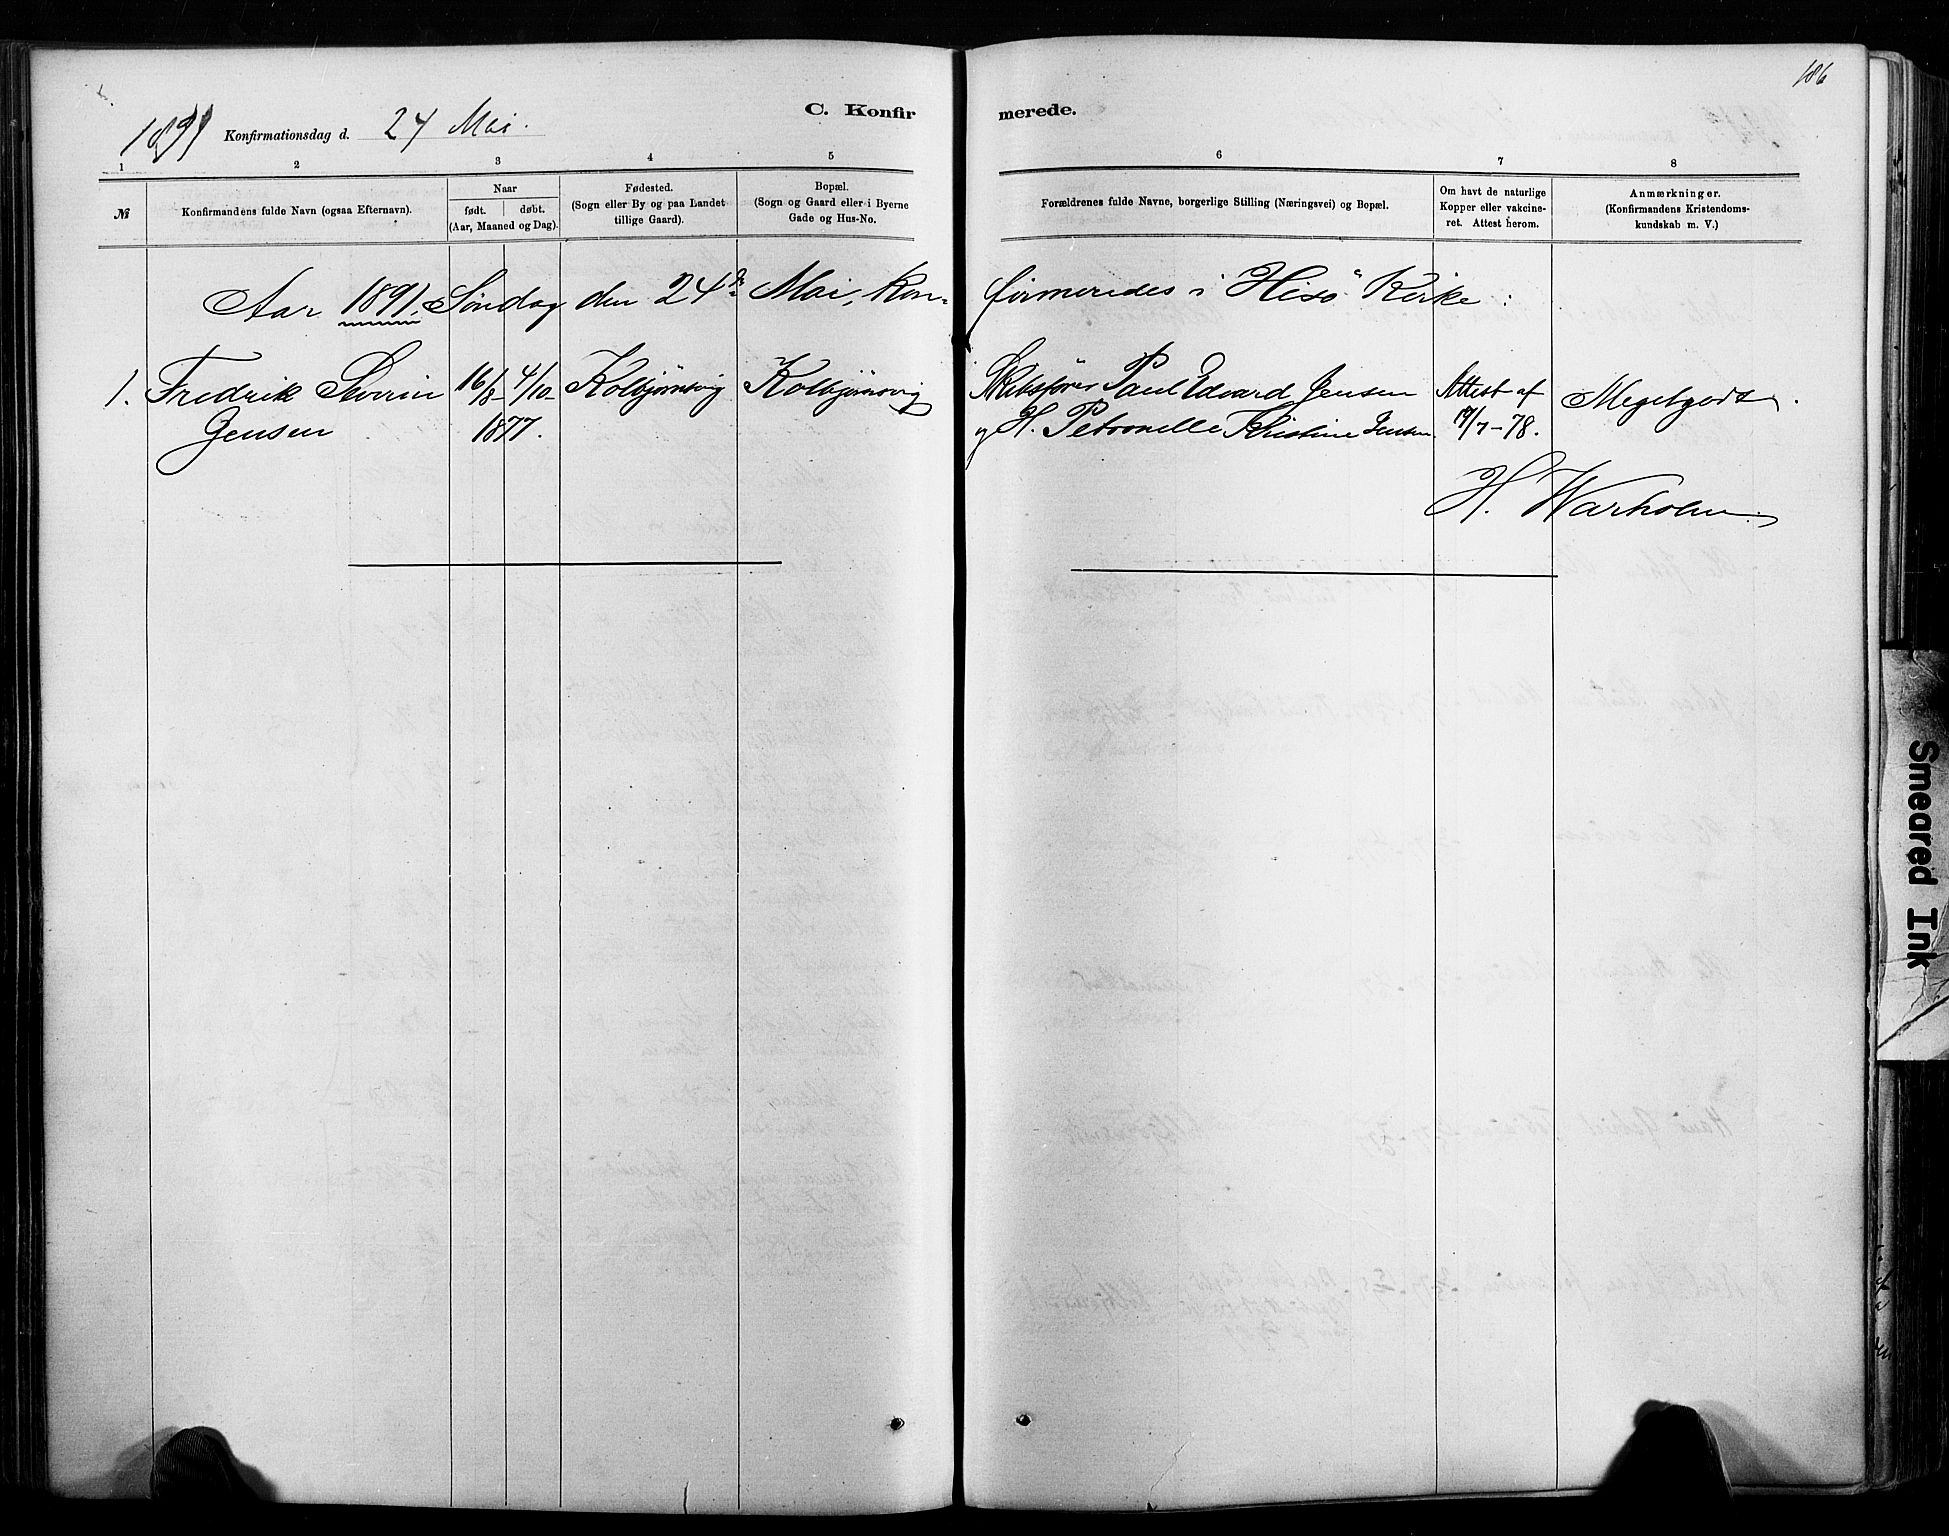 186
C. Konfirmerede.
1891 Konfirmationsdag d. 24 Mai.
1 2 3 4 5 6 7 8
№
Konfirmandens fulde Navn (ogsaa Efternavn).
Naar
født. døbt.
(Aar, Maaned og Dag).
Fødested.
(Sogn eller By og paa Landet
tillige Gaard).
Bopæl.
(Sogn og Gaard eller i Byerne
Gade og Hus-No.
Forældrenes fulde Navne, borgerlige Stilling (Næringsvei) og Bopæl.
Om havt de naturlige
Kopper eller vakcine-
ret. Attest herom.
Anmærkninger.
(Konfirmandens Kristendoms-
kundskab m. V.)
Aar 1891. Søndag den 24de Mai, kon- firmeredes i Hisö Kirke:
1. Fredrik Severin 16/8- 4/10- Kolbjørnsvig Kolbjørnsvig Skibsfører Paul Edvard Jensen Attest af Megetgodt.
Jensen 1877. og H. Petronelle Kristine Jensen 19/7-78.
H. Warholm.
Smeared Ink